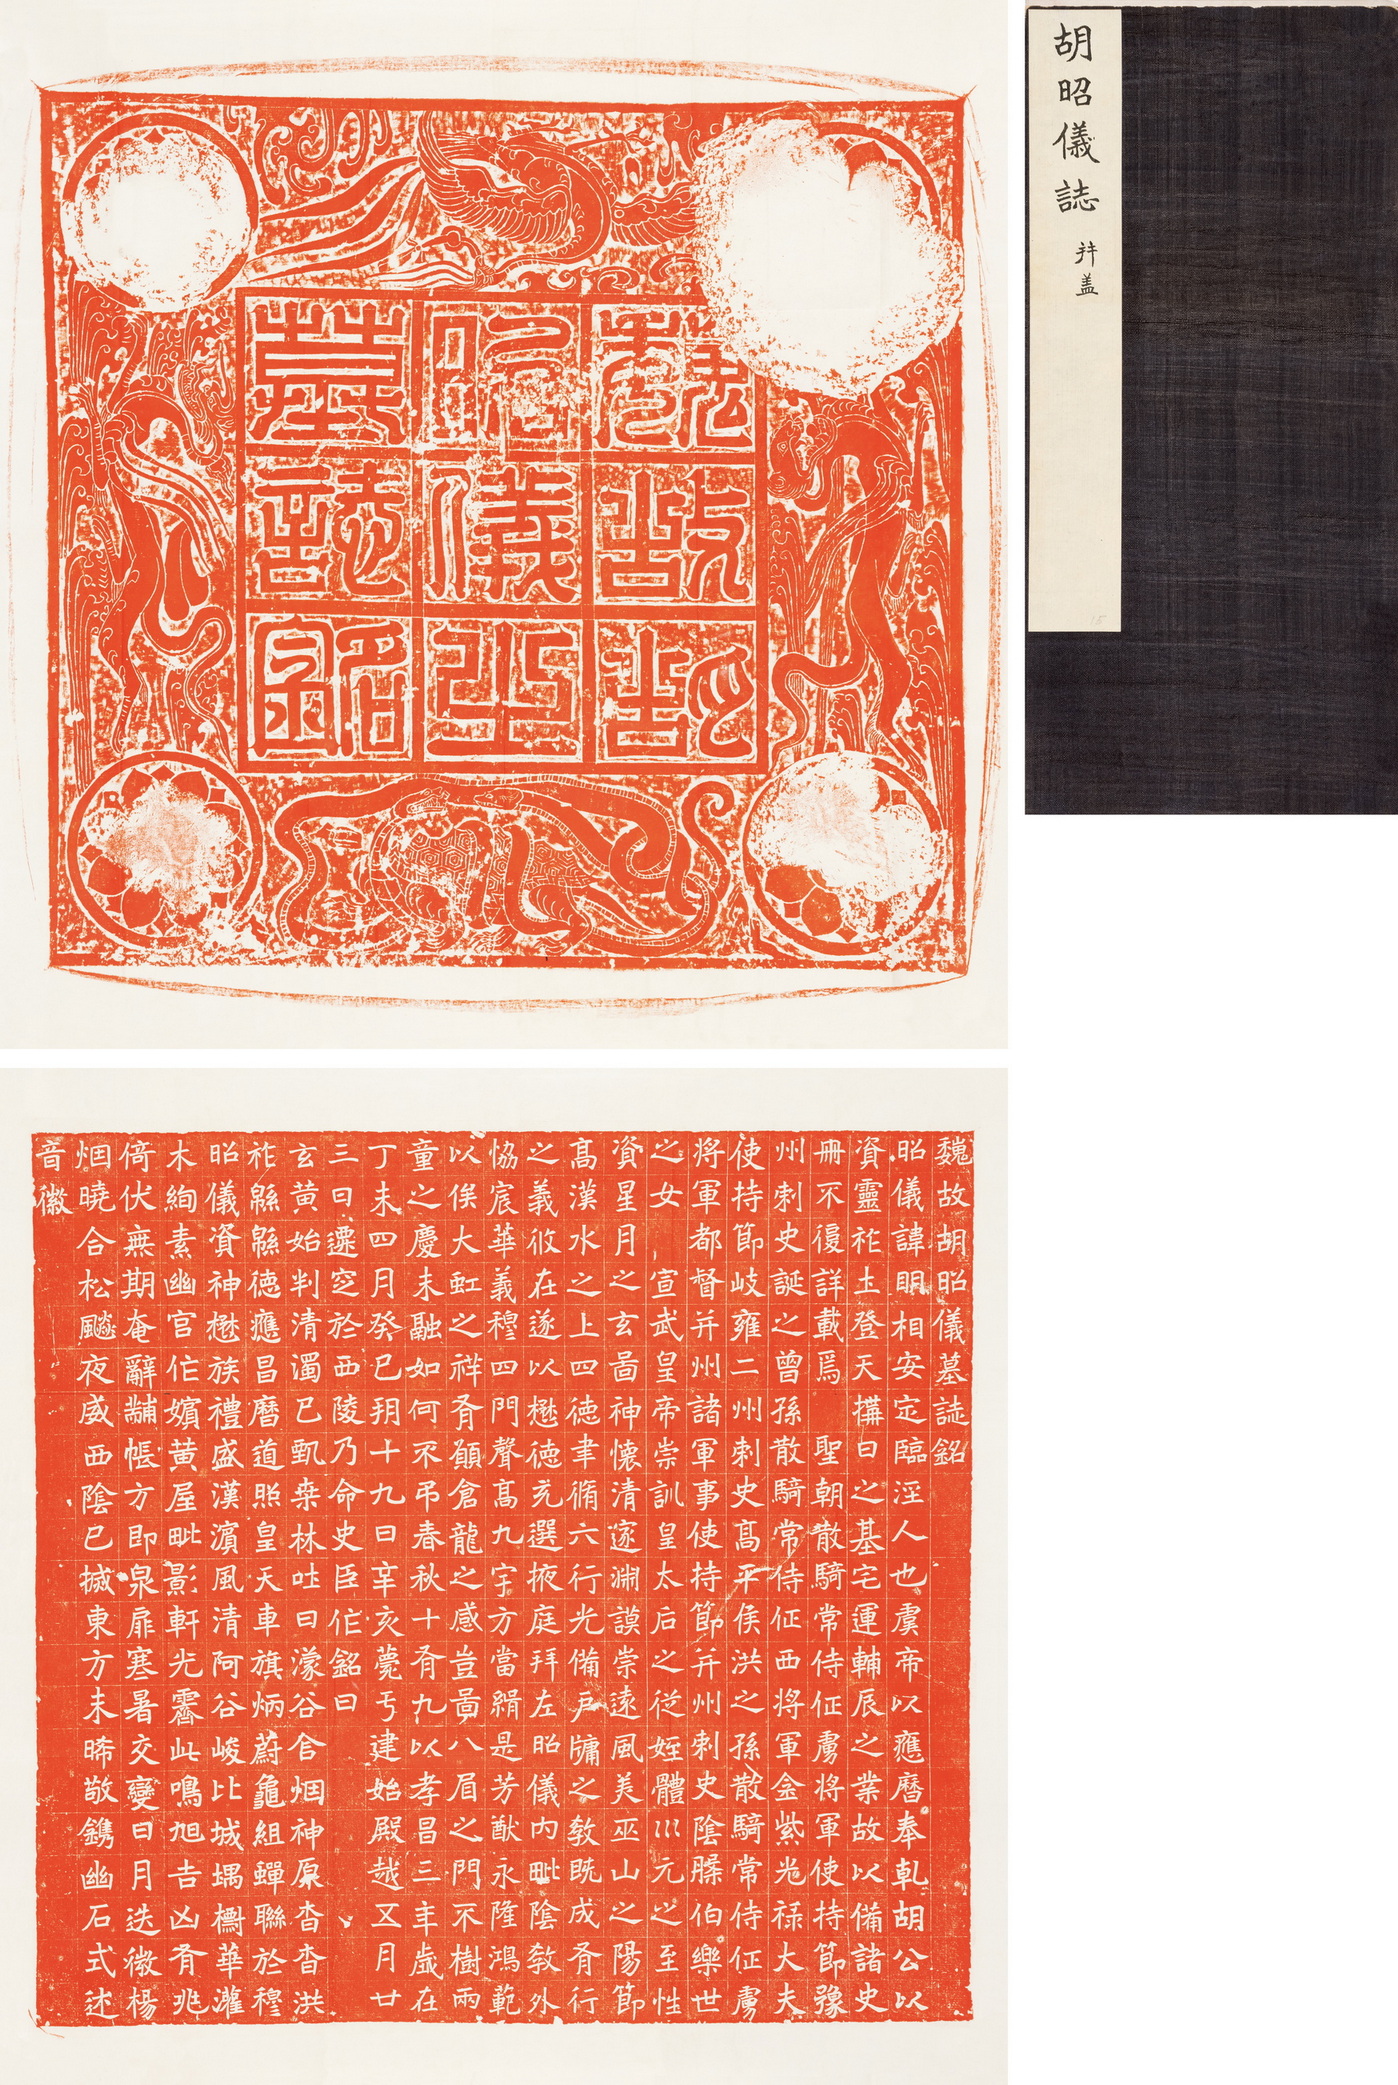 魏故胡
昭儀之
墓誌銘
胡昭儀誌
并盖
魏故胡昭儀墓誌銘
昭儀諱明相安定臨涇人也虞帝以應曆奉乹胡公以
資靈祚土登天構日之基宅運輔辰之業故以備諸史
冊不復詳載焉 聖朝散騎常侍征虜將軍使持節豫
州刺史誕之曾孫散騎常侍征西將軍金紫光祿大夫
使持節岐雍二州刺史高平侯洪之孫散騎常侍征虜
將軍都督并州諸軍事使持節并州刺史陰槃伯樂世
之女 宣武皇帝崇訓皇太后之從姪體巛元之至性
資星月之玄啚神懷清邃淵謨崇遠風美巫山之陽節
高漢水之上四德聿脩六行光備戶牖之教既成有行
之義攸在遂以懋德充選掖庭拜左昭儀內毗陰教外
恊宸華義穆四門聲高九宇方當緝是芳猷永隆鴻範
以俟大虹之祥有願倉龍之感豈啚八眉之門不樹兩
童之慶未融如何不弔春秋十有九以孝昌三年歲在
丁未四月癸巳朔十九日辛亥薨于建始殿越五月廿
三日遷窆於西陵乃命史臣作銘曰
玄黃始判清濁已甄桒林吐日濛谷含烟神原杳杳洪
祚緜緜德應昌曆道煦皇天車旗炳蔚龜組蟬聯於穆
昭儀資神懋族禮盛漢濱風清阿谷峻比城堣欎華灌
木絢素幽宮作嬪黃屋毗影軒光霽此鳴旭吉凶有兆
倚伏無期奄辭黼帳方即泉扉寒暑交變日月迭微楊
烟曉合松飈夜威西陰已搣東方未晞敬鐫幽石式述
音徽